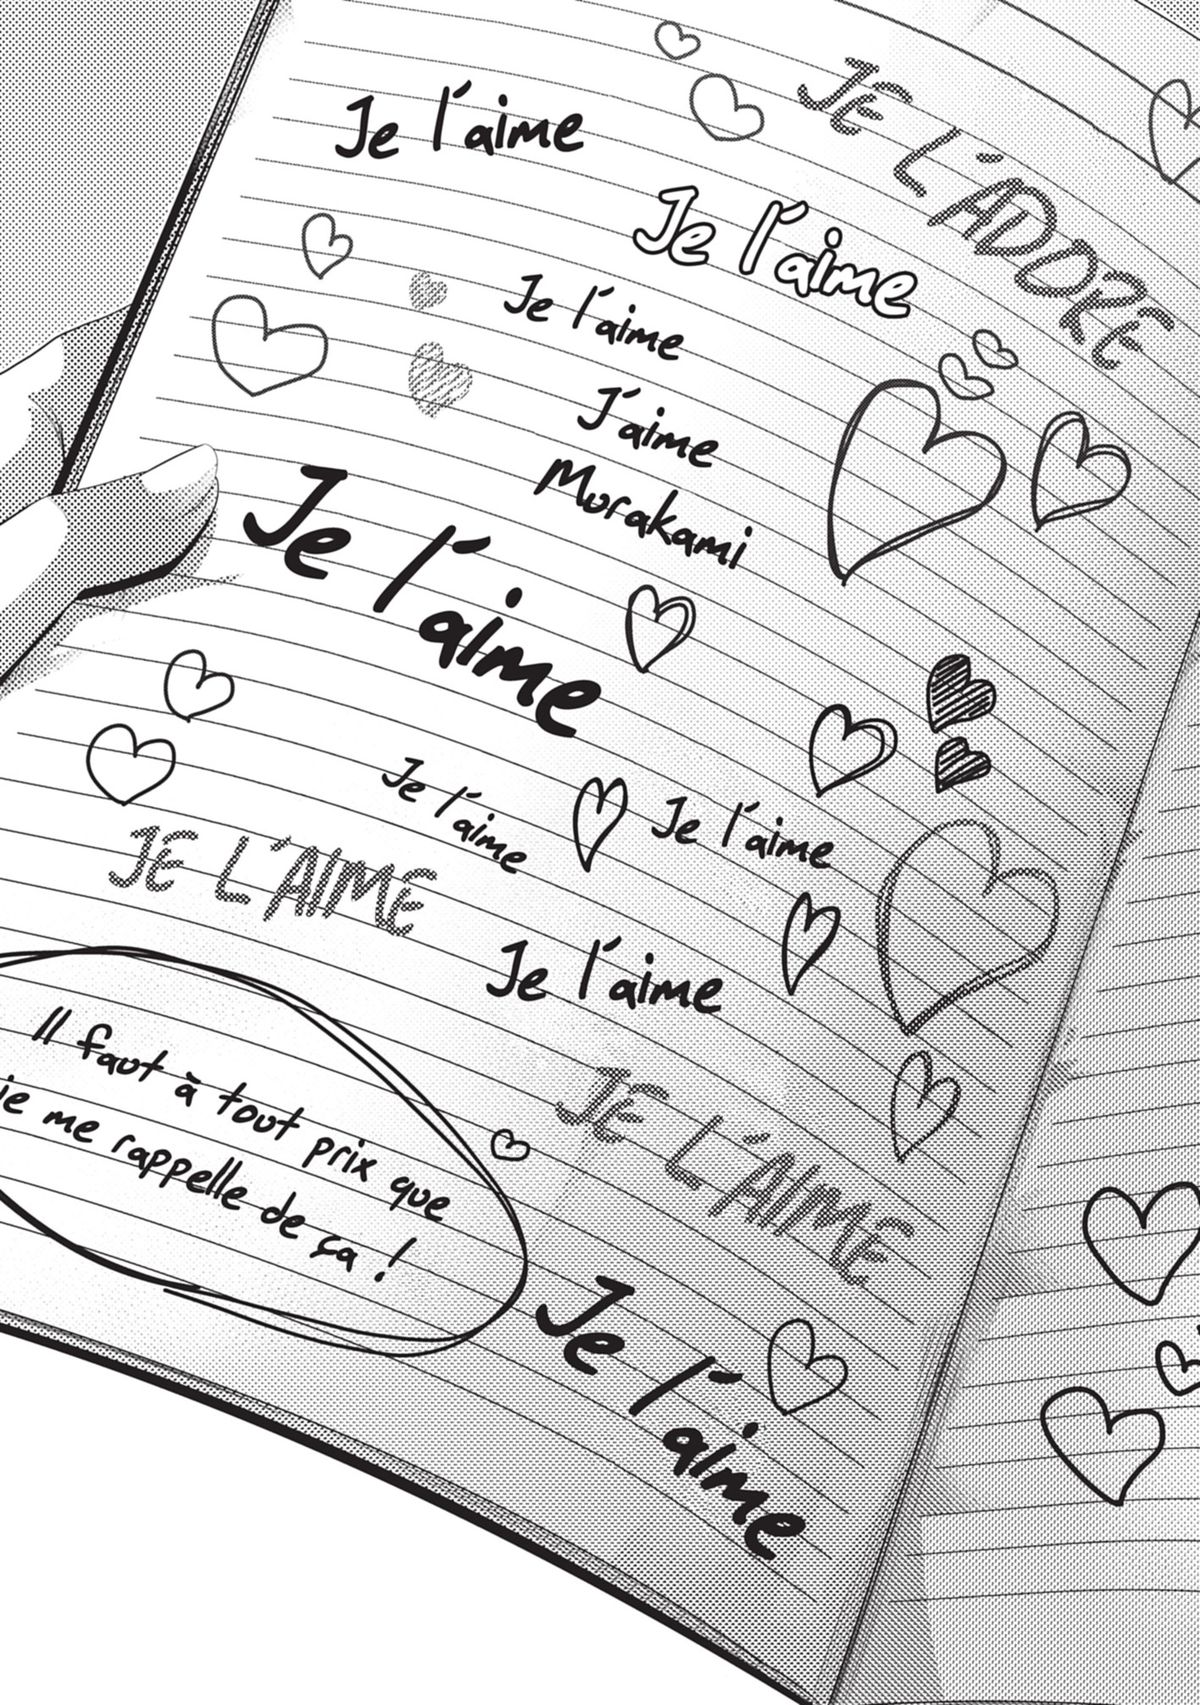 Je l'aime
JE L'ADORE
Je l'aime
Je l'aime
J'aime
Murakami
Je l'aime
Je l'aime
Je l'aime
JE L'AIME
Je l'aime
Il faut à tout prix que
je me rappelle de ça !
JE L'AIME
Je l'aime